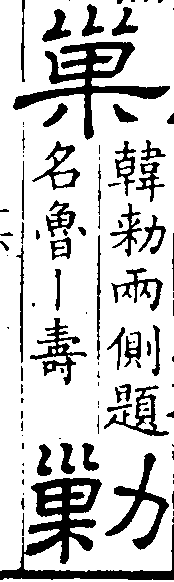 巢
韓勑兩側題
名魯丨壽
勦